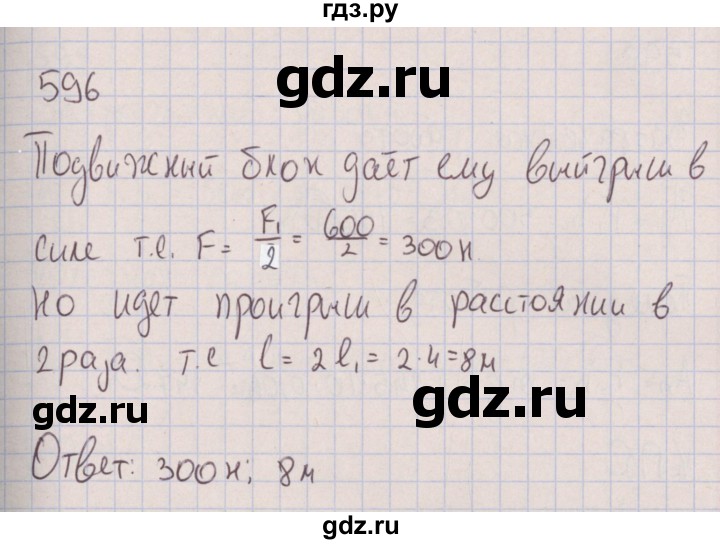 гдз.ру
gdz.ru
596
Подвижный блок даёт ему выйгрыш в
силе т.е. F = F₁/2 = 600/2 = 300н
но идет проигрыш в расстоянии в
2 раза. т.е l = 2l₁ = 2·4=8м
gdz.ru
gdz.ru
Ответ: 300н; 8м
gdz.ru